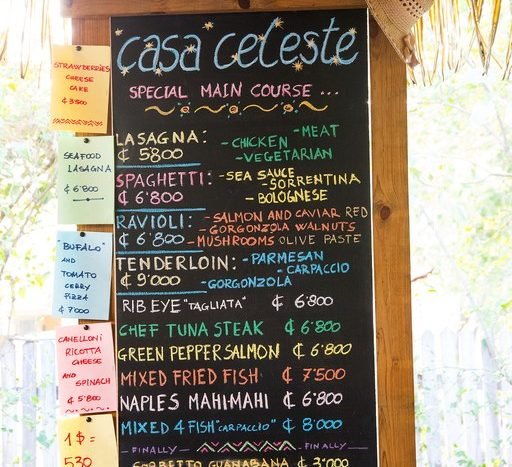 casa celeste
SPECIAL MAIN COURSE ...
LASAGNA: - CHICKEN - MEAT
₡ 5800 - VEGETARIAN
SPAGHETTI: - SEA SAUCE
₡ 6'800 - SORRENTINA
- BOLOGNESE
RAVIOLI: - SALMON AND CAVIAR RED
₡ 6'800 - GORGONZOLA WALNUTS
- MUSHROOMS OLIVE PASTE
TENDERLOIN: - PARMESAN
₡ 9'000 - CARPACCIO
- GORGONZOLA
RIB EYE "TAGLIATA" ₡ 6'800
CHEF TUNA STEAK ₡ 6'800
GREEN PEPPER SALMON ₡ 6'800
MIXED FRIED FISH ₡ 7'500
NAPLES MAHI-MAHI ₡ 6'800
MIXED 4 FISH "CARPACCIO" ₡ 8'000
- FINALLY - FINALLY -
SORBETTO GUANABANA ₡ 3'000
STRAWBERRIES
CHEESE
CAKE
₡ 3'500
SEAFOOD
LASAGNA
₡ 6'800
"BUFALO"
AND
TOMATO
CERRY
PIZZA
₡ 7'000
CANELLONI
RICOTTA
CHEESE
AND
SPINACH
₡ 5'800
1$ =
530